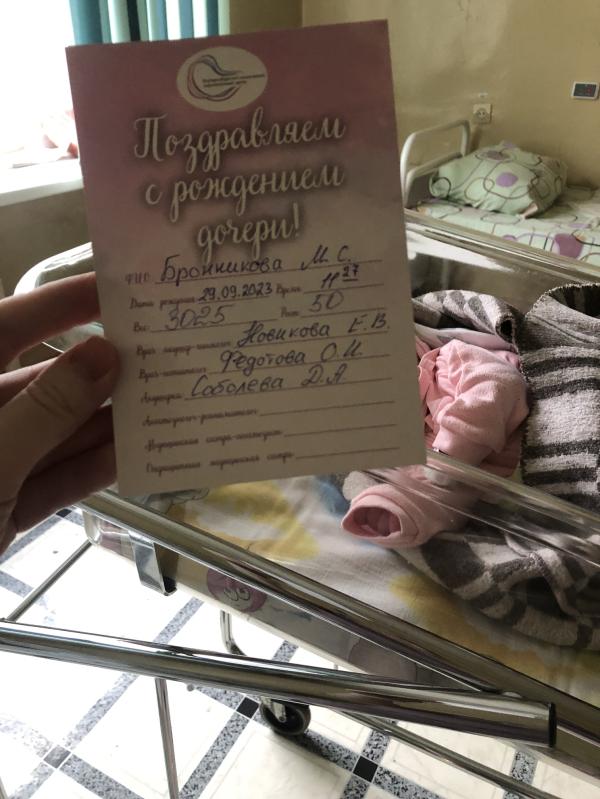 Поздравляем
с рождением
дочери!
ФИО Бронникова М. С.
Дата рождения 29.09.2023 Время 11 27
Вес 3025 Рост 50
Врач акушер-гинеколог Новикова Е. В.
Врач-неонатолог Федотова О. И.
Акушерка Соболева Д. А
Анестезиолог-реаниматолог
Медицинская сестра-анестезист
Операционная медицинская сестра